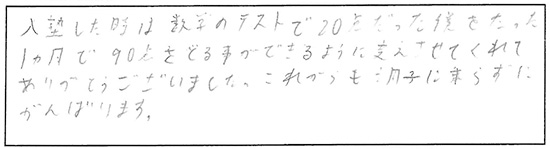 入塾した時は数学のテストで20点だった僕をたった
1カ月で90点をとる事ができるように変えさせてくれて
ありがとうございました。これからも調子に乗らずに
がんばります。